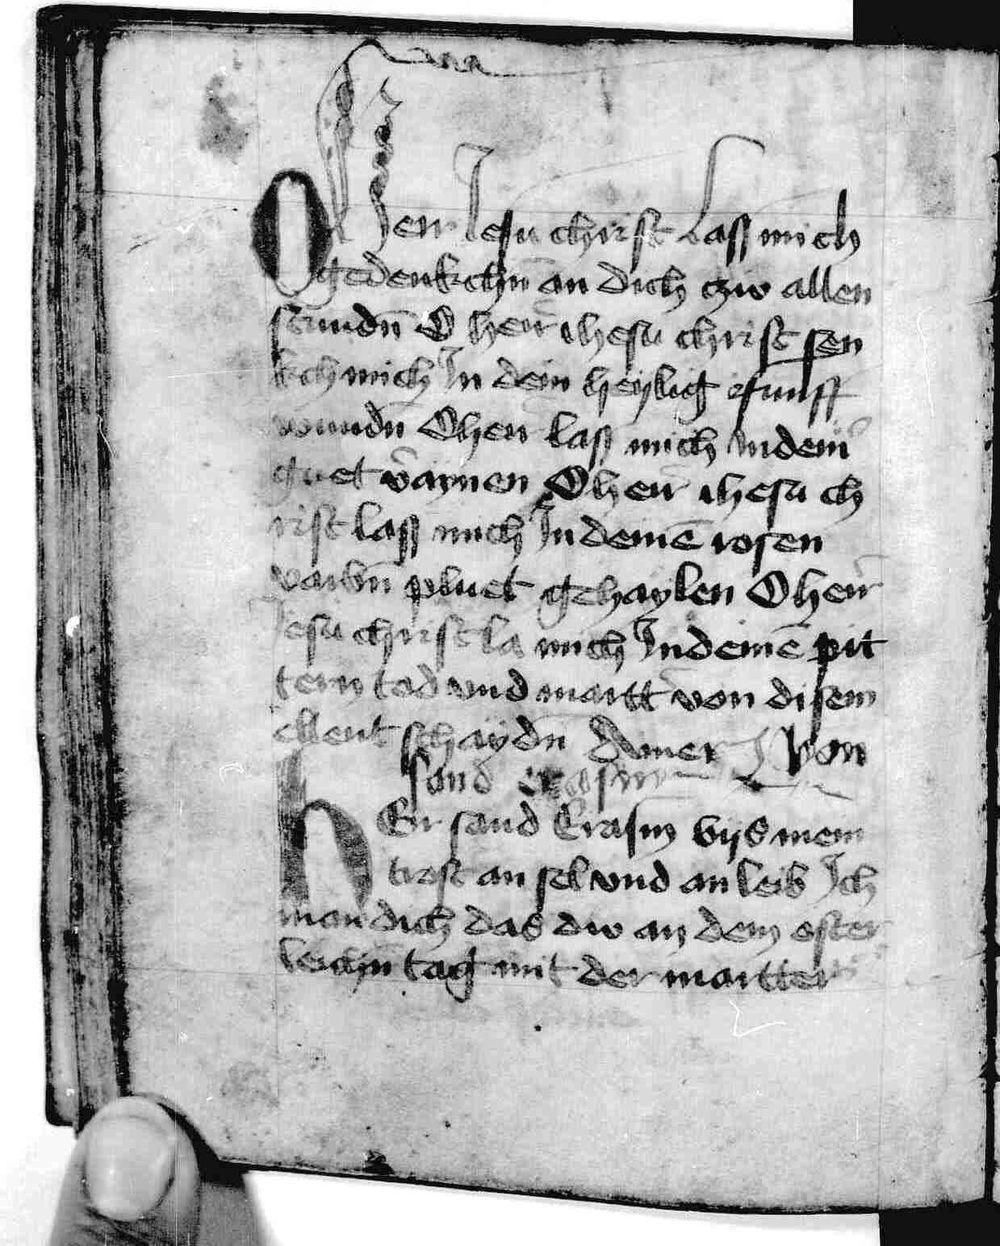 O Herr Jesu christ lass mich
gedenkchn an dich czw allen
stundn O herr ihesu christ sen
kch mich In dein heylig funff
wundn O herr lass mich In dein
guet v̄aynen O herr ihesu ch
rist lass mich In deinē rosen
varbn pluet gehaylen O herr
Jesu christ la mich In deinē pit
tern tod vnd martt̄ von disem
ellent schaydn Amen Von
sand erasm
HEr sand Erasm bys mein
trost an sel vnd an leib Ich
man dich das dw an dem oster
leichn tag mit der martter